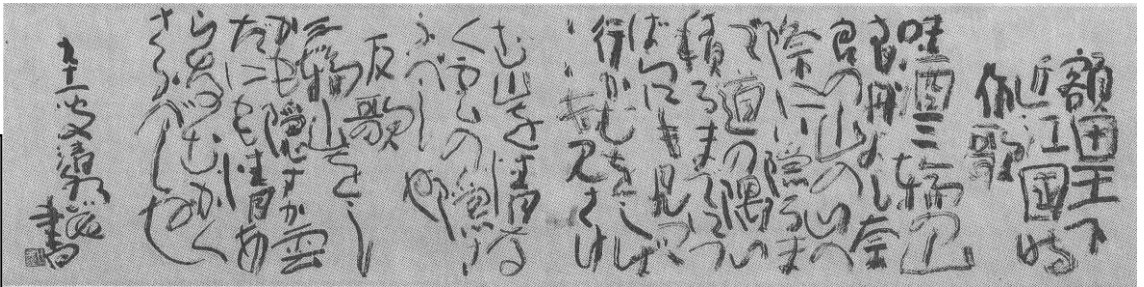 額田王下
近江國時
作歌
味酒三輪の山
青丹よし奈
良の山の山の
際にい隠るま
で道の隅い
積るまでにつ
ばらにも見つゝ
行かむをしば
しばも見さけ
む山を情な
く雲の隠さ
ふべしや
反歌
三輪山をし
かも隠すか雲
だにも情あ
らなむかく
さふべしや
九十一叟
書